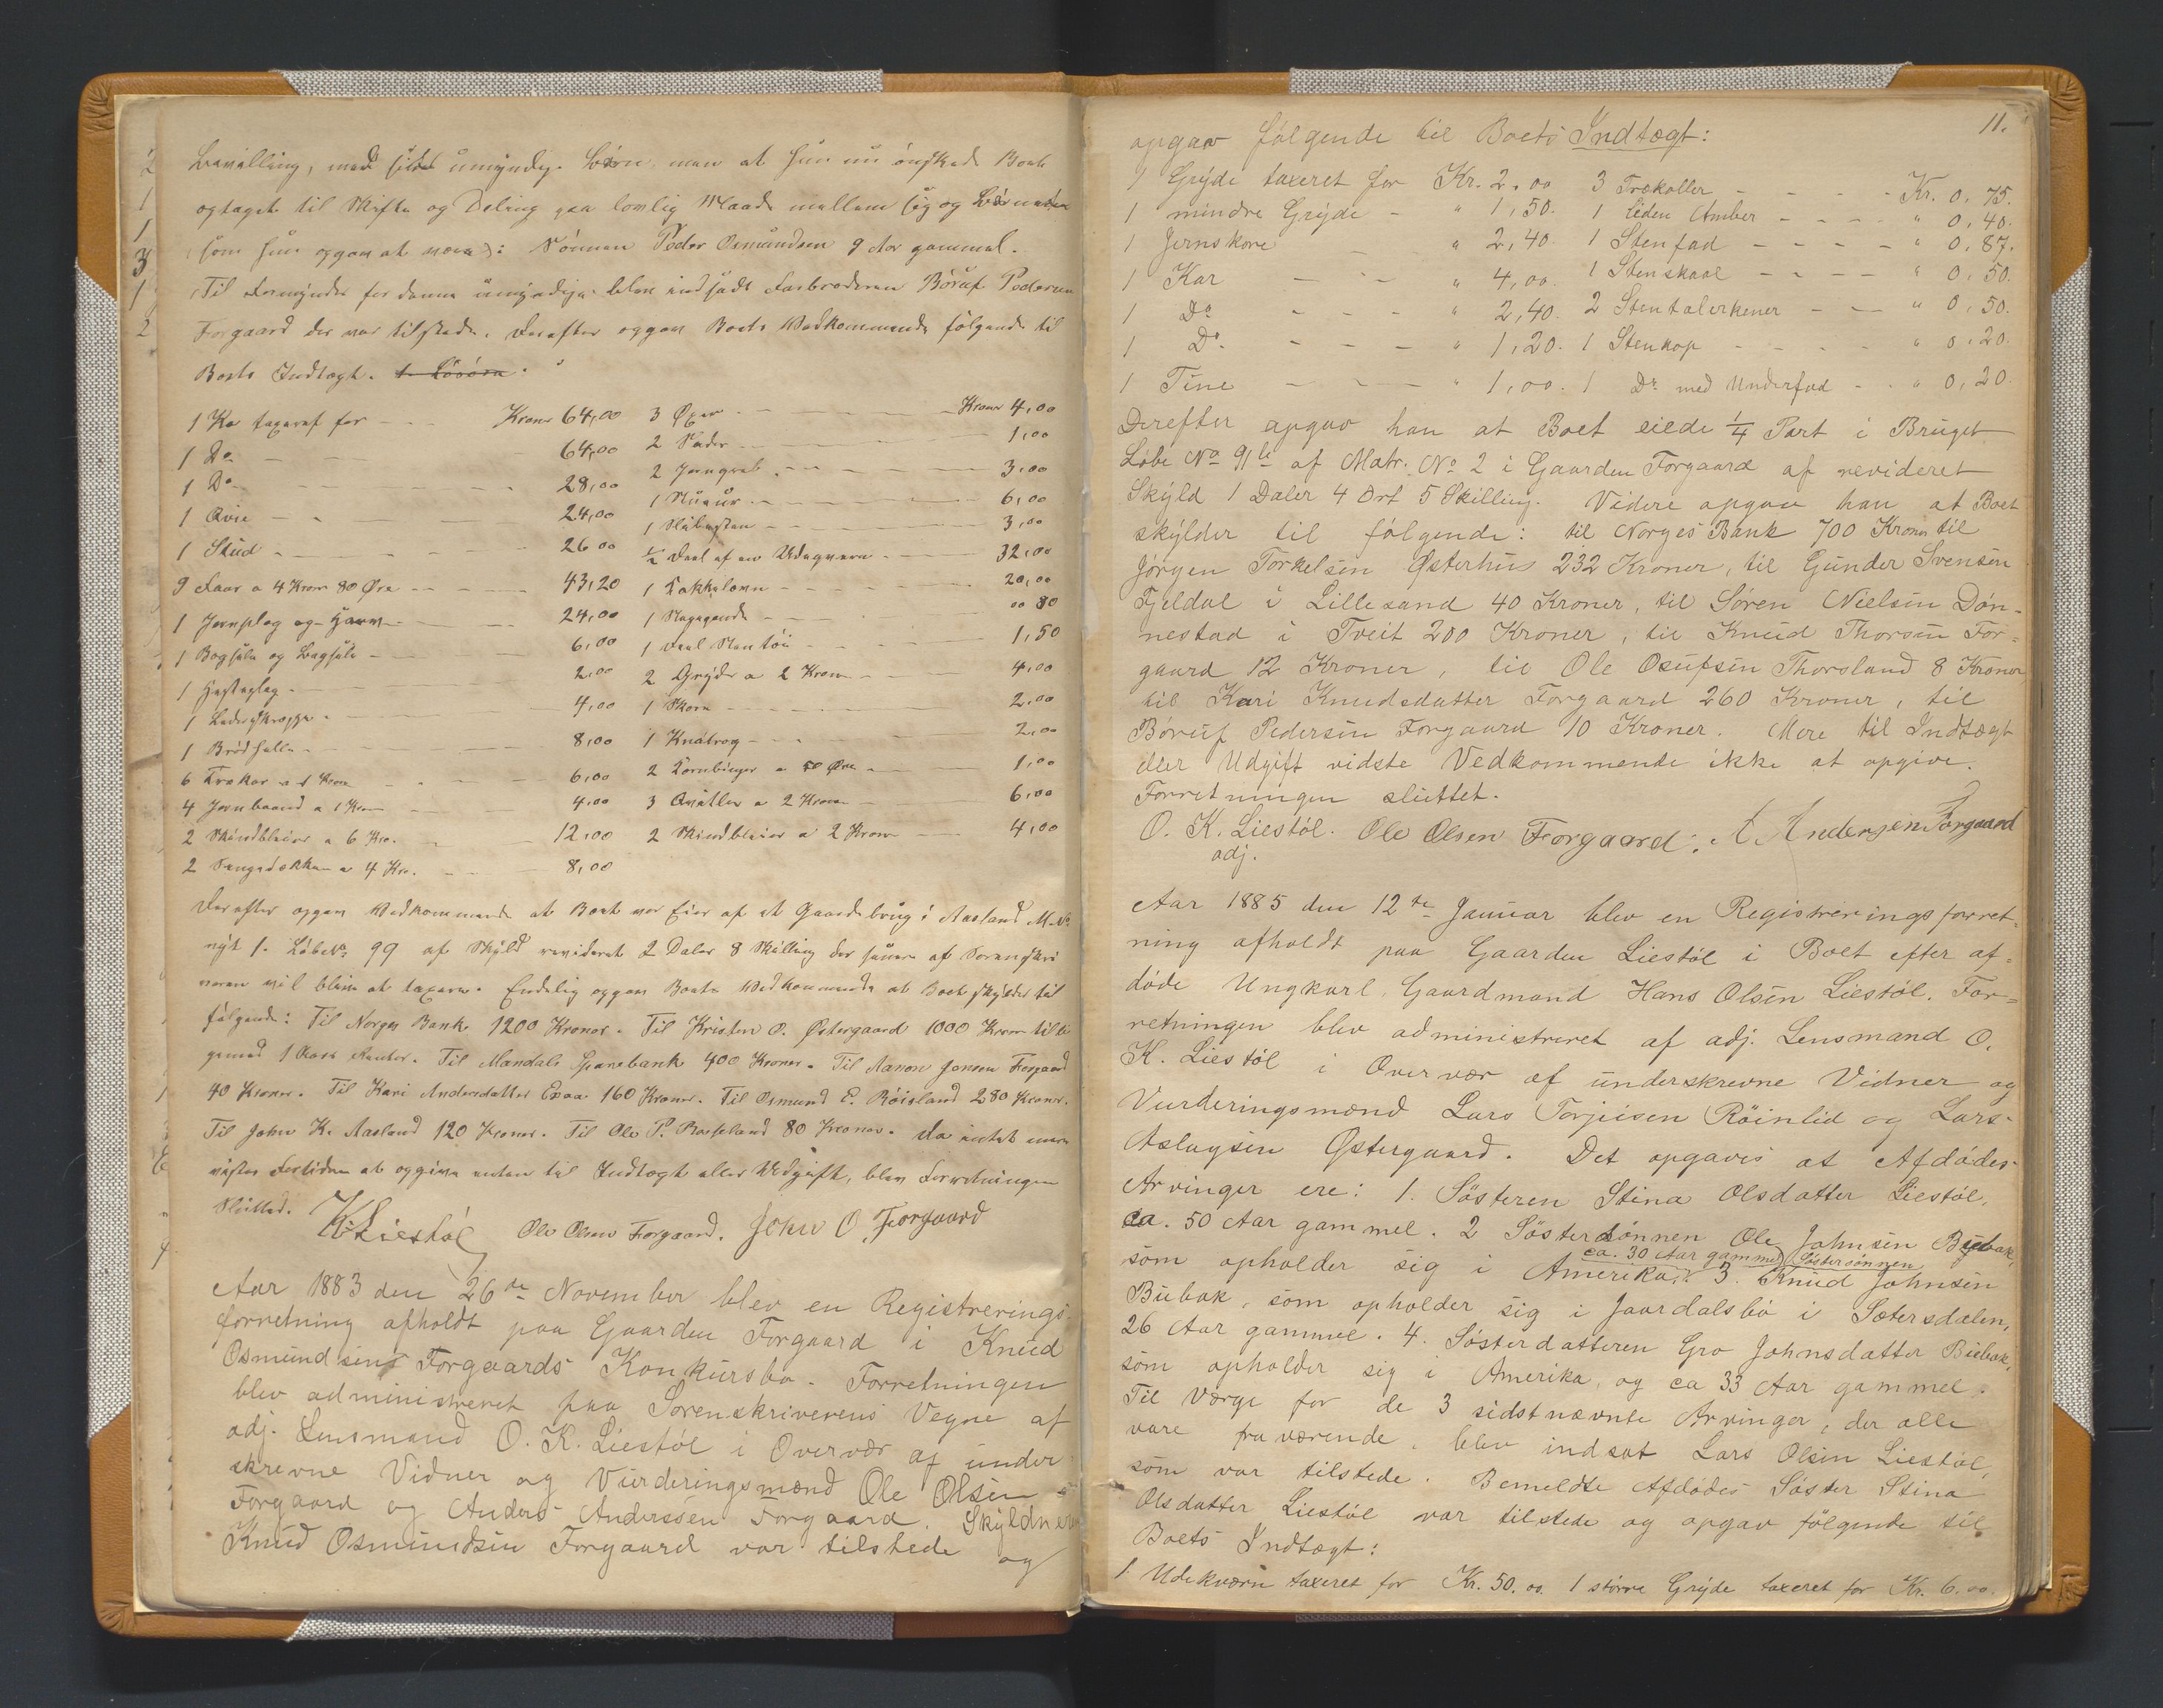 Bevilling, med sidst umyndige Børn, men at hun nu ønskede Boet
optaget til Skifte og Deling paa lovlig Maade mellem sig og Børnene
som hun opgav at være: Sønnen Peder Osmundsen 9 Aar gammel.
Til Formynder for denne umyndige blev indsat Farbroderen Børuf Pedersen
Forgaard der var tilstede. Derefter opgav Boets Vedkommende følgende til
Boets Indtægt.
1 Ko taxeret for Kroner 64,00 3 Øxer Kroner 4,00
1 Do 64,00 2 1,00
1 Do 28,00 2 Jerngreb 3,00
1 Qvie 24,00 1 Stueur 6,00
1 Stud 26 00 1 Slibesten 3,00
9 Faar a 4 Kroner 80 Øre 43,20 ½ Deel af en Udeqvern 32,00
1 Jernplog og Harv 24,00 1 Kakkelovn 20,00
1 Bogsæle og Bagsæle 6,00 1 00 80
1 2,00 1 Deel 1,50
1 4,00 2 Gryder a 2 Kroner 4,00
1 8,00 1 Skorn 2,00
6 Trækar a 1 Krone 6,00 1 Knatrog 2,00
4 Jernbaand a 1 Krone 4,00 2 Kornbinger a 50 Øre 1,00
2 Skindbleier a 6 Kro. 12,00 3 Qvitler a 2 Kroner 6,00
2 Sengedækken a 4 Kro. 8,00 2 Skindbleier a 2 Kroner 4,00
Derefter opgav Vedkommende at Boet var Eier af et Gaardsbrug i Aasland M.No
nyt 1. LøbeNo 99 af Skyld revideret 2 Daler 8 Skilling der senere af Sorenskri
veren vil blive at taxere. Endelig opgav Boets Vedkommende at Boet skylder til
følgende: Til Norges Bank 1200 Kroner. Til Kristen O. Østergaard 1000 Kroner
1 Aars Renter. Til Mandals Sparebank 400 Kroner. Til Aanon Jensen Forgaard
40 Kroner. Til Kari Andersdatter Eraa 160 Kroner. Til Osmund E. Röisland 280 Kroner.
Til John K. Aasland 120 Kroner. Til Ole P. Roseland 80 Kroner. Da intet mere
vistes at opgive enten til Indtægt eller Udgift, blev Forretningen
Sluttet.
K Liestøl Ole Olsen Forgaard. John O. Forgaard
Aar 1883 den 26de November blev en Registrerings
forretning afholdt paa Gaarden Forgaard i Knud
Osmundsens Forgaards Konkursbo. Forretningen
blev administreret paa Sorenskriverens Vegne af
adj. Lensmand O. K. Liestöl i Overvær af under
skrevne Vidner og Vurderingsmænd Ole Olsen
Forgaard og Anders Anderssen Forgaard. Skyldneren
Knud Osmundsen Forgaard var tilstede og
11.
opgav følgende til Boets Indtægt:
1 Gryde taxeret for Kr. 2,00 3 Trækoller Kr. 0,75.
1 mindre Gryde " 1,50. 1 liden Amber " 0,40.
1 Jernskove " 2,40. 1 Stenfad " 0,87.
1 Kar " 4,00. 1 Stenskaal " 0,50.
1 Do " 2,40. 2 Stentalerkener " 0,50.
1 Do. " 1,20. 1 Stenkop " 0,20.
1 Tine " 1,00. 1 Do med Underfad " 0,20.
Derefter opgav han at Boet eiede ¼ Part i Bruget
Løbe No 91b af Matr. No 2 i Gaarden Forgaard af revideret
Skyld 1 Daler 4 Ort 5 Skilling. Videre opgav han at Boet
skylder til følgende: til Norges Bank 700 Kroner til
Jörgen Torkelsen Østerhus 232 Kroner, til Gunder Svensen
Fjeldal i Lillesand 40 Kroner, til Søren Nielsen Døn-
nestad i Tveit 200 Kroner, til Knud Thorsen For-
gaard 12 Kroner, til Ole Osufsen Thorsland 8 Kroner
til Kari Knudsdatter Forgaard 260 Kroner, til
Børuf Pedersen Forgaard 10 Kroner. Mere til Indtægt
eller Udgift vidste Vedkommende ikke at opgive.
Forretningen sluttet.
O. K. Liestöl. Ole Olsen Forgaard. A Andersen Forgaard
adj.
Aar 1885 den 12te Januar blev en Registreringsforret-
ning afholdt paa Gaarden Liestøl i Boet efter af-
døde Ungkarl, Gaardmand Hans Olsen Liestöl. For-
retningen blev administreret af adj. Lensmand O.
K. Liestöl i Overvær af underskrevne Vidner og
Vurderingsmænd Lars Torjeisen Röinlid og Lars
Aslagsen Østergaard. Det opgaves at Afdødes
Arvinger ere: 1. Søsteren Stina Olsdatter Liestøl,
ca. 50 Aar gammel. 2 Søstersønnen Ole Johnsen Bubak,
ca. 30 Aar gammel Søstersønnen
som opholder sig i Amerika, 3. Knud Johnsen
Bubak, som opholder sig i Jaardalsbø i Sætersdalen,
26 Aar gammel. 4. Søsterdatteren Gro Johnsdatter Bubak,
som opholder sig i Amerika, og ca 33 Aar gammel.
Til Værge for de 3 sidstnævnte Arvinger, der alle
vare fraværende, blev indsat Lars Olsen Liestøl,
som var tilstede. Bemeldte Afdødes Søster Stina
Olsdatter Liestøl var tilstede og opgav følgende til
Boets Indtægt:
1 Udekværn taxeret for Kr. 50.00. 1 større Gryde taxeret for Kr. 6.00.